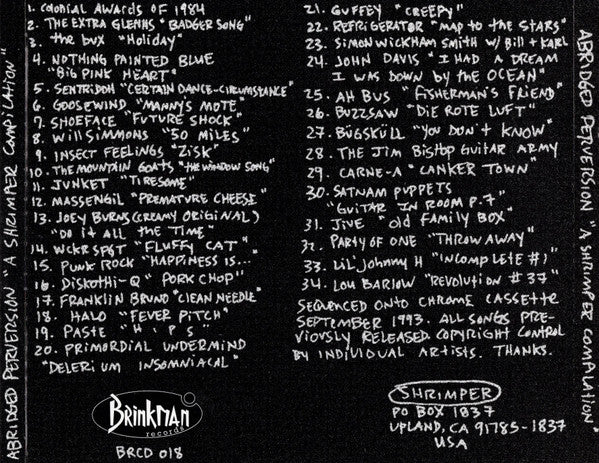 ABRIDGED PERVERSION "A SHRIMPER COMPILATION"
1. COLONIAL AWARDS OF 1984
2. THE EXTRA GLENNS "BADGER SONG"
3. the bux "Holiday"
4. NOTHING PAINTED BLUE
"BIG PINK HEART"
5. SENTRIDOH "CERTAIN DANCE-CIRCUMSTANCE"
6. GOOSEWIND "MANNY'S MOTE"
7. SHOEFACE "FUTURE SHOCK"
8. Will SIMMONS "50 MILES"
9. INSECT FEELINGS "ZISK"
10. THE MOUNTAIN GOATS "THE WINDOW SONG"
11. JUNKET "TIRESOME"
12. MASSENGIL "PREMATURE CHEESE"
13. JOEY BURNS (CREAMY ORIGINAL)
"DO it ALL the TIME"
14. WCKR SPGT "FLUFFY CAT"
15. PUNK ROCK "HAPPINESS IS..."
16. DISKOTHI-Q "PORK CHOP"
17. FRANKLIN BRUNO "CLEAN NEEDLE"
18. HALO "FEVER PITCH"
19. PASTE "HIPS"
20. PRIMORDIAL UNDERMIND
"DELERIUM INSOMNIACAL"
Brinkman
records
BRCD 018
21. GUFFEY "CREEPY"
22. REFRIGERATOR "MAP to the STARS"
23. SIMON WICKHAM SMITH W/ Bill + KARL
24. JOHN DAVIS "I HAD A DREAM
I WAS DOWN by the OCEAN"
25. AH BUS "FISHERMAN'S FRIEND"
26. BUZZSAW "DIE ROTE LUFT"
27. BÜGSKÜLL "YOU DON't KNOW"
28. THE JIM BISHOP GUITAR ARMY
29. CARNE-A "CANKER TOWN"
30. SATNAM PUPPETS
"GUITAR IN ROOM P.7"
31. JIVE "Old FAMILY BOX"
32. PARTY OF ONE "THROW AWAY"
33. LIL' JOHNNY H "INCOMPLETE #1"
34. LOU BARLOW "REVOLUTION #37"
SEQUENCED ONTO CHROME CASSETTE
SEPTEMBER 1993. ALL SONGS PRE-
VIOUSLY RELEASED. COPYRIGHT CONTROL
BY INDIVIDUAL ARTISTS. THANKS.
SHRIMPER
PO BOX 1837
UPLAND, CA 91785-1837
USA
ABRIDGED PERVERSION "A SHRIMPER COMPILATION"